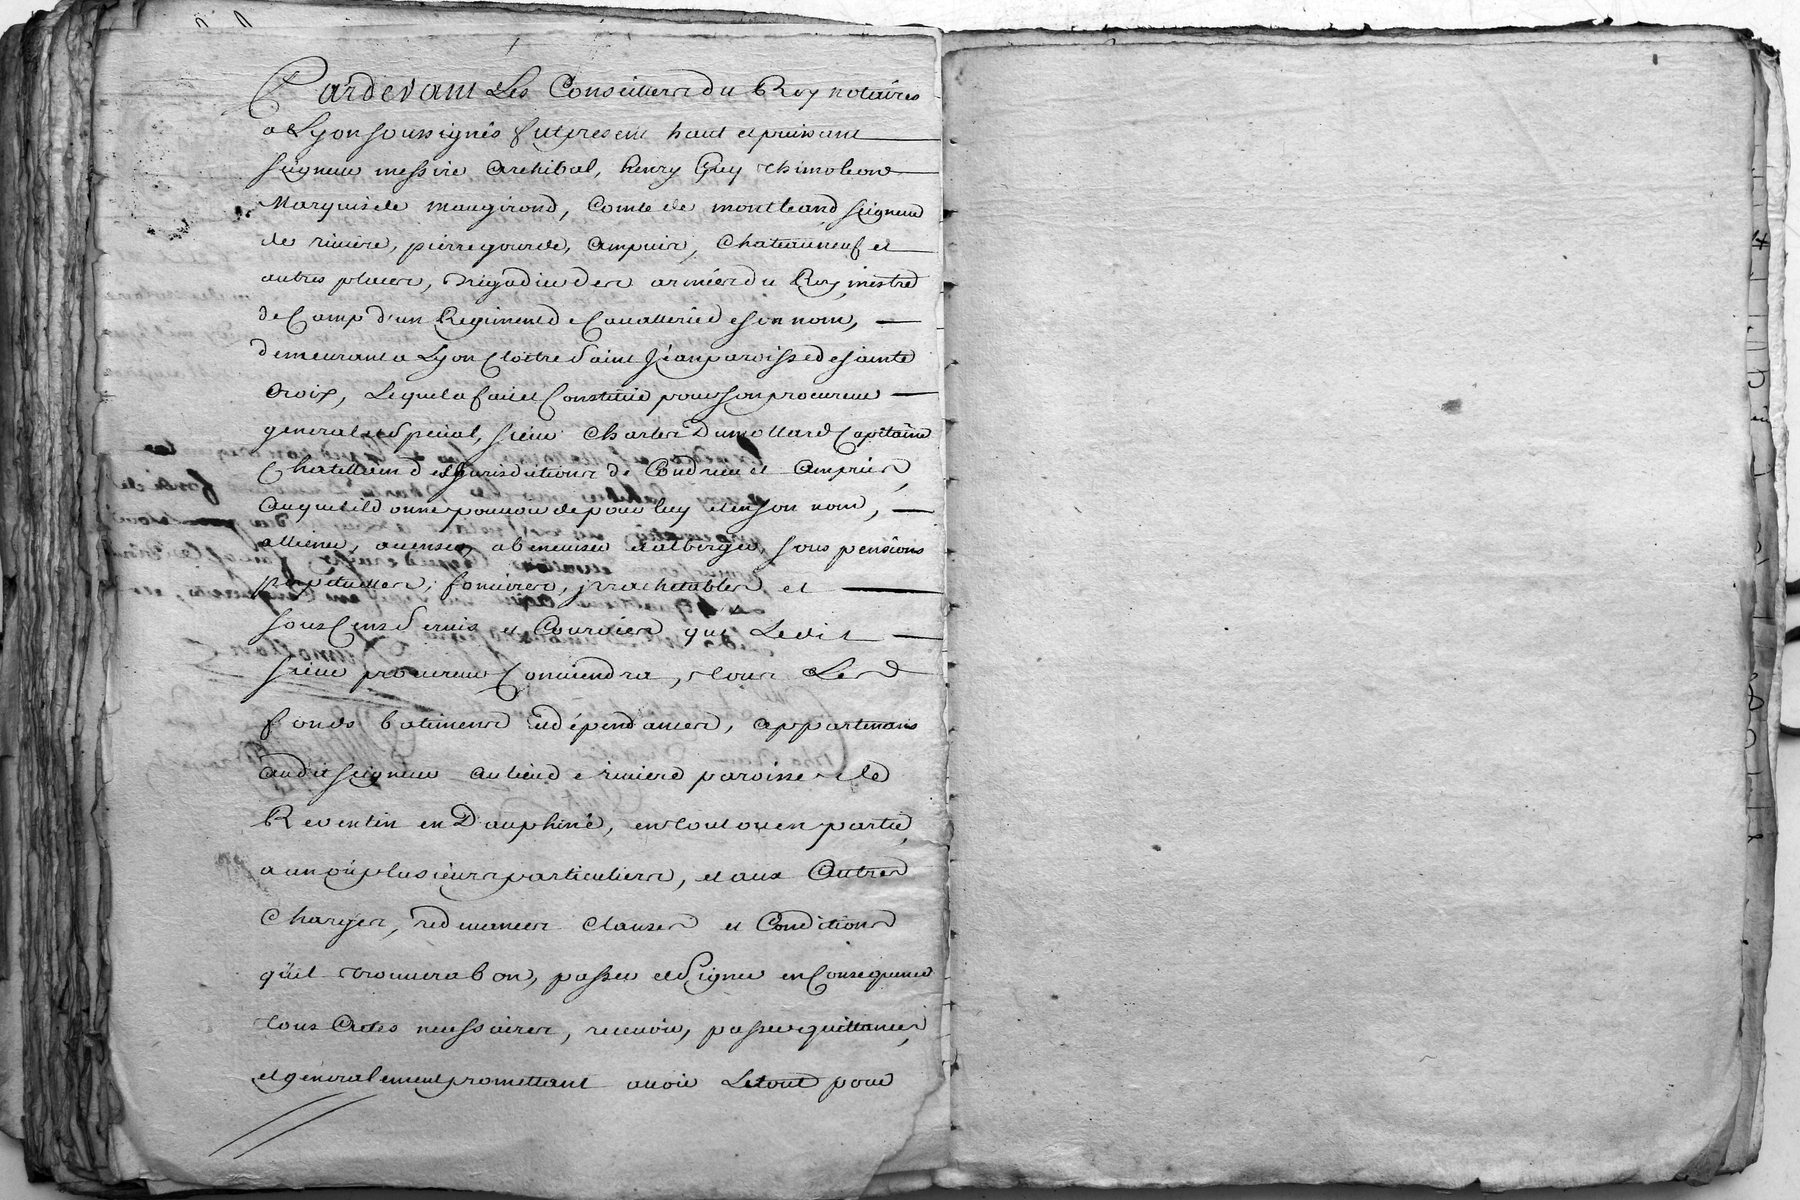 Pardevant Les Conseillers du Roy notaires
a Lyon soussignés fut present haut et puissant
seigneur messire archibal, henry Guy thimoleon
Marquis de maugirond, Comte de montleand seigneur
de riviere, pierregourde, ampuis, Chateauneuf et
autres places, Brigadier des armées du Roy, mestre
de Camp d'un Regiment de Cavallerie de son nom,
demeurant a Lyon Cloître Saint Jéan paroisse de sainte
Croix, Lequel a fait et Constitué pour son procureur
general et Special, sieur Charles Dumollard Capitaine
Chatellain des Jurisdictions de Condrieu et Ampuis,
auquel il donne pouvoir de pour luy et en son nom,
alliener, acenser, abeneviser et alberger, sous pensions
perpetuelles, foncieres, jrrachetables et
sous Cens Servis et Courvées que Ledit
sieur procureur Conviendra, tous Les
fonds batimens et dépendances, appartenans
audit seigneur au lieu de riviere paroisse de
Reventin en Dauphiné, en tout ou en partie,
a un ou plusieurs particuliers, et aux autres
Charges, redevances Clauses et Conditions
qu'il trouvera bon, passer et Signer en Consequence
tous Actes necessaires, recevoir, passer quittances,
et generalement promettant avoir Le tout pour